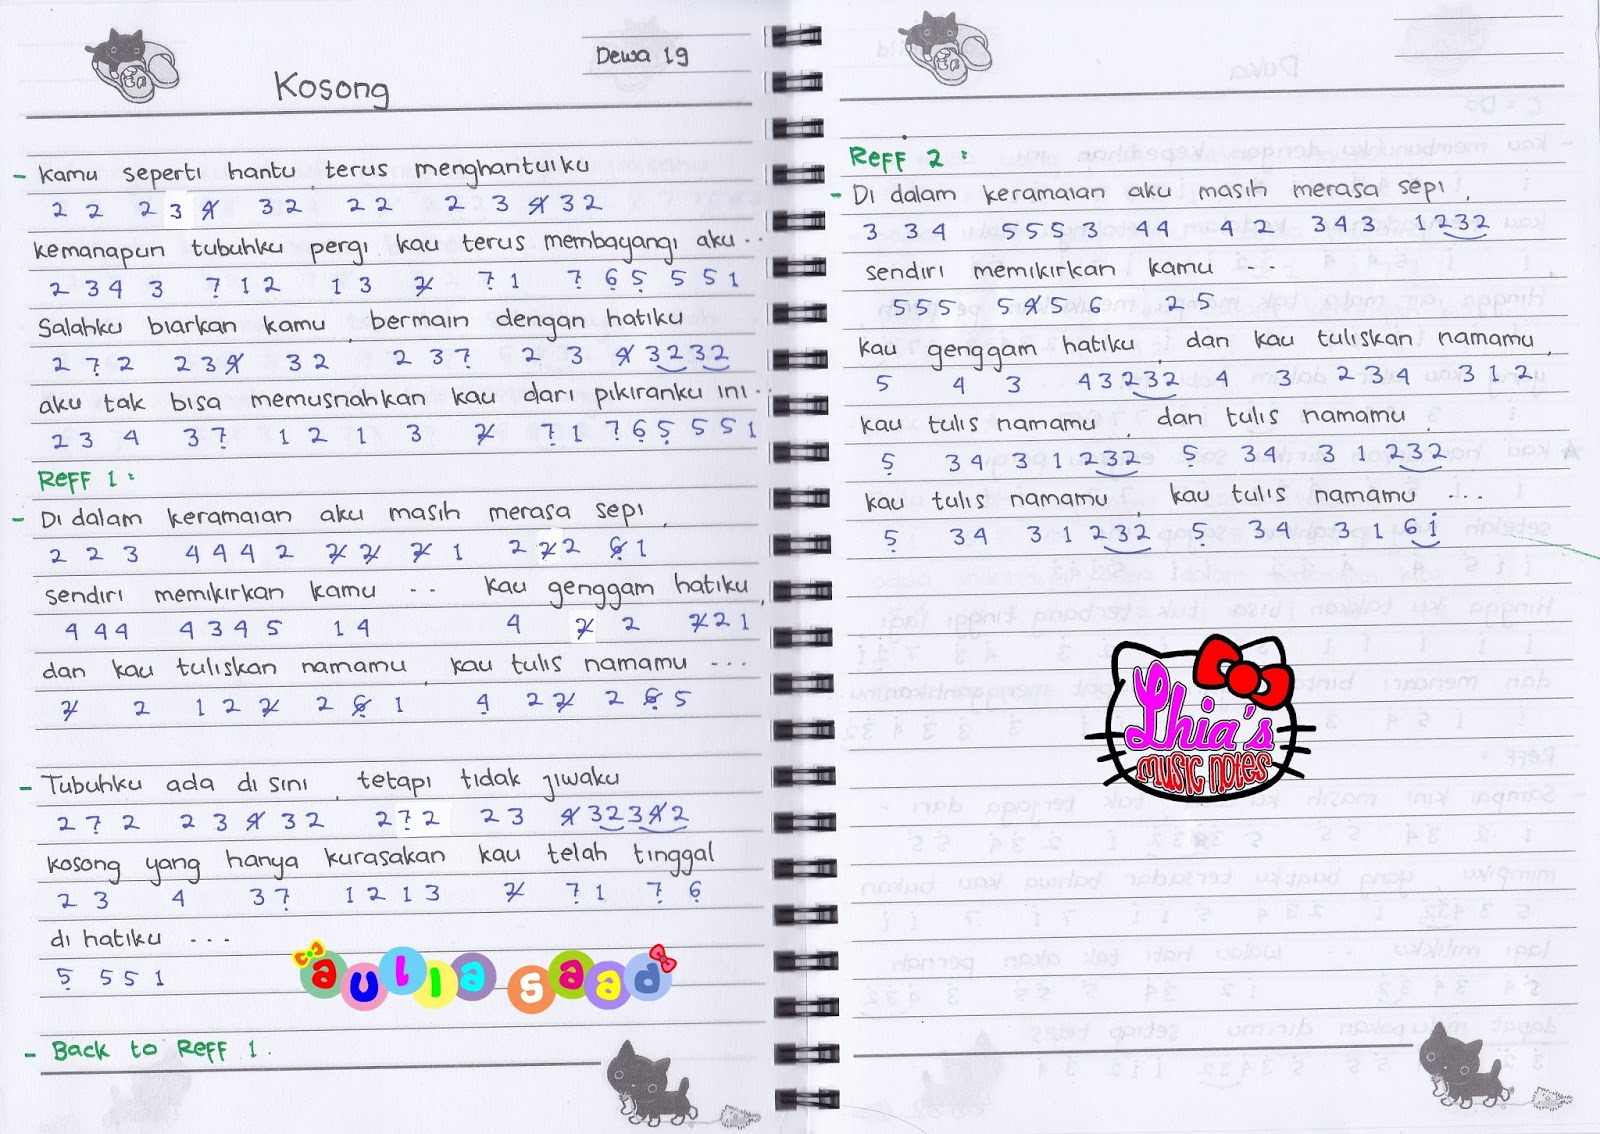 Dewa 19
Kosong
- Kamu seperti hantu, terus menghantuiku
2 2 2 3 4̸ 3 2 2 2 2 3 4̸ 3 2
kemanapun tubuhku pergi kau terus membayangi aku..
2 3 4 3 7̣ 1 2 1 3 2̸ 7̣ 1 7̣ 6̣ 5̣ 5 5 1
Salahku biarkan kamu, bermain dengan hatiku
2 7̣ 2 2 3 4̸ 3 2 2 3 7̣ 2 3 4̸ 3 2 3 2
aku tak bisa memusnahkan kau dari pikiranku ini..
2 3 4 3 7̣ 1 2 1 3 2̸ 7̣ 1 7̣ 6̣ 5̣ 5 5 1
Reff 1 :
- Di dalam keramaian aku masih merasa sepi,
2 2 3 4 4 4 2 2̸ 2̸ 2̸ 1 2 2̸ 2 6̸̣ 1
sendiri memikirkan kamu .. kau genggam hatiku,
4 4 4 4 3 4 5 1 4 4 2̸ 2 2̸ 2 1
dan kau tuliskan namamu, kau tulis namamu ...
2̸ 2 1 2 2̸ 2 6̸̣ 1 4̣ 2 2̸ 2 6̸̣ 5
- Tubuhku ada di sini, tetapi tidak jiwaku
2 7̣ 2 2 3 4̸ 3 2 2 7̣ 2 2 3 4̸ 3 2 3 4̸ 2
kosong yang hanya kurasakan kau telah tinggal
2 3 4 3 7̣ 1 2 1 3 2̸ 7̣ 1 7̣ 6̣
di hatiku ...
5̣ 5 5 1
aulia saad
- Back to Reff 1.
Reff 2 :
- Di dalam keramaian aku masih merasa sepi,
3 3 4 5 5 5 3 4 4 4 2 3 4 3 1 2 3 2
sendiri memikirkan kamu ...
5 5 5 5 4̸ 5 6 2 5
kau genggam hatiku, dan kau tuliskan namamu,
5 4 3 4 3 2 3 2 4 3 2 3 4 3 1 2
kau tulis namamu, dan tulis namamu,
5̣ 3 4 3 1 2 3 2 5̣ 3 4 3 1 2 3 2
kau tulis namamu, kau tulis namamu ...
5̣ 3 4 3 1 2 3 2 5̣ 3 4 3 1 6 1̇
Lhia's
music notes